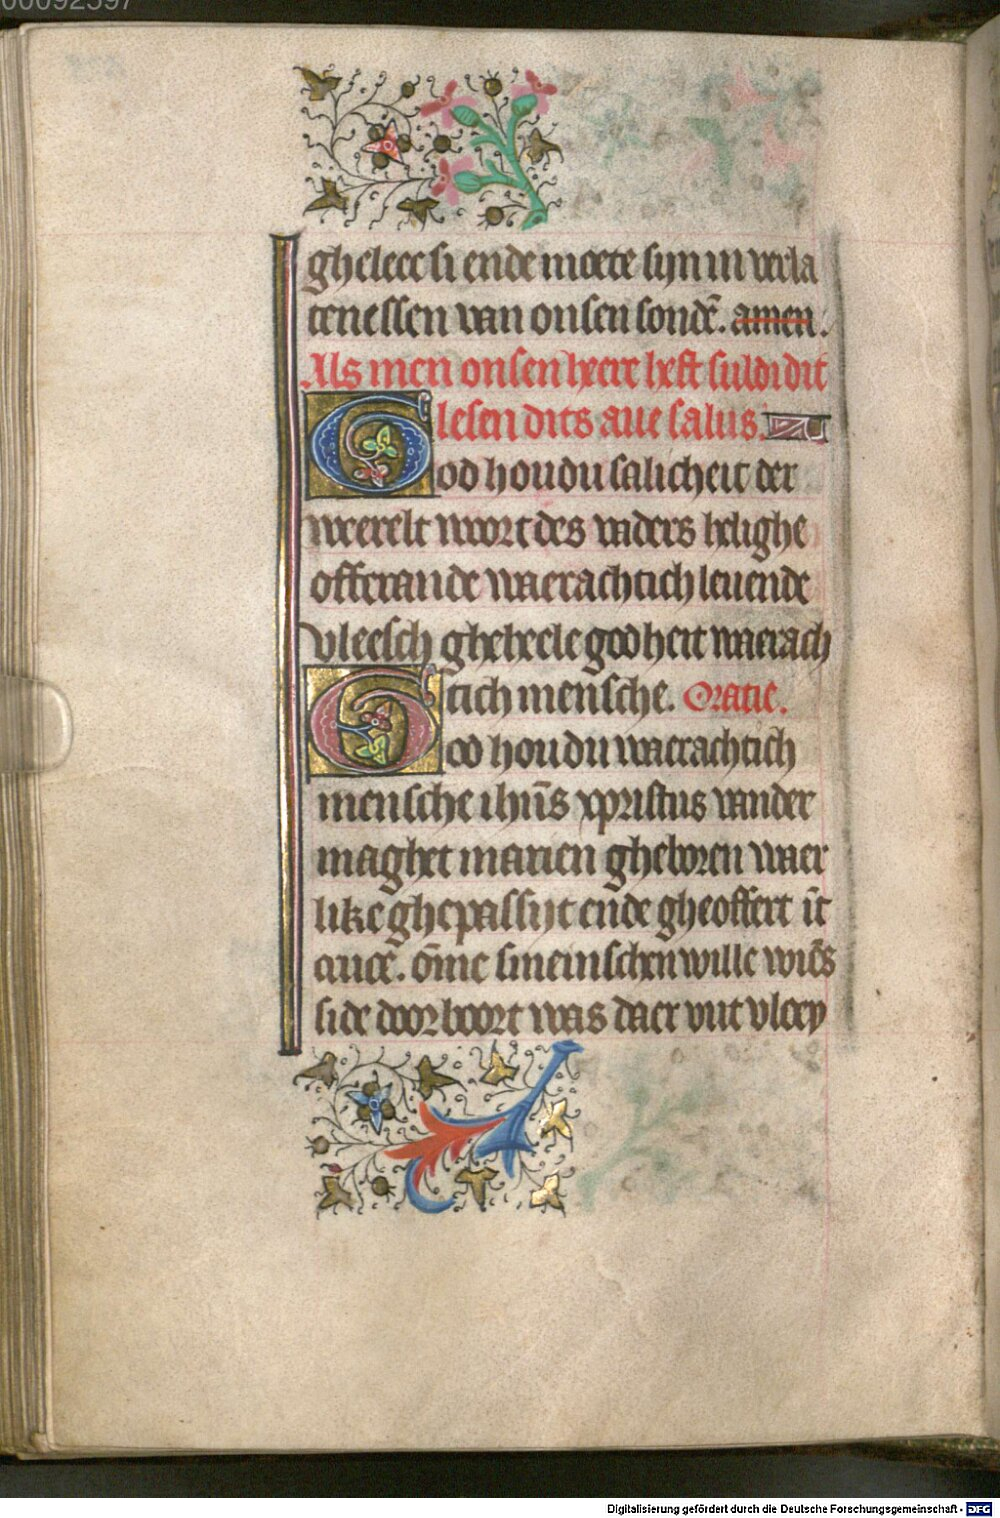 00092597
gheleec si ende moete sijn in verla
tenessen van onsen sondē. amen.
Als men onsen heere heft suldi dit
lesen dits aue salus.
God houdu salicheit der
weerelt woort des vaders helighe
offerande waerachtich leuende
vleesch gheheele godheit waerach
tich mensche. Oratie.
God houdu waerachtich
mensche ihūs xpristus vander
maghet marien gheboren waer
like ghepassijt ende gheoffert īt
crucē. ōme smeinschen wille wiēs
side doorboort was daer vut vloey
Digitalisierung gefördert durch die Deutsche Forschungsgemeinschaft - DFG